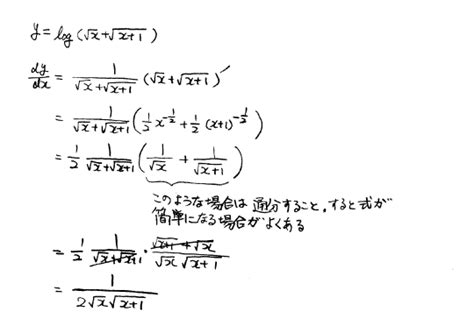 y = log(√x+√x+1)
dy/dx = 1/(√x+√x+1) (√x+√x+1)′
= 1/(√x+√x+1) (1/2 x^(-1/2) + 1/2 (x+1)^(-1/2))
= 1/2 1/(√x+√x+1) (1/√x + 1/√x+1)
このような場合は 通分すること。すると式が
簡単になる場合がよくある
= 1/2 1/(√x+√x+1) · (√x+1+√x)/(√x √x+1)
= 1/(2√x√x+1)